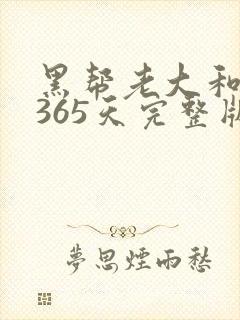 黑帮老大和
365天完整版
夢思煙雨愁